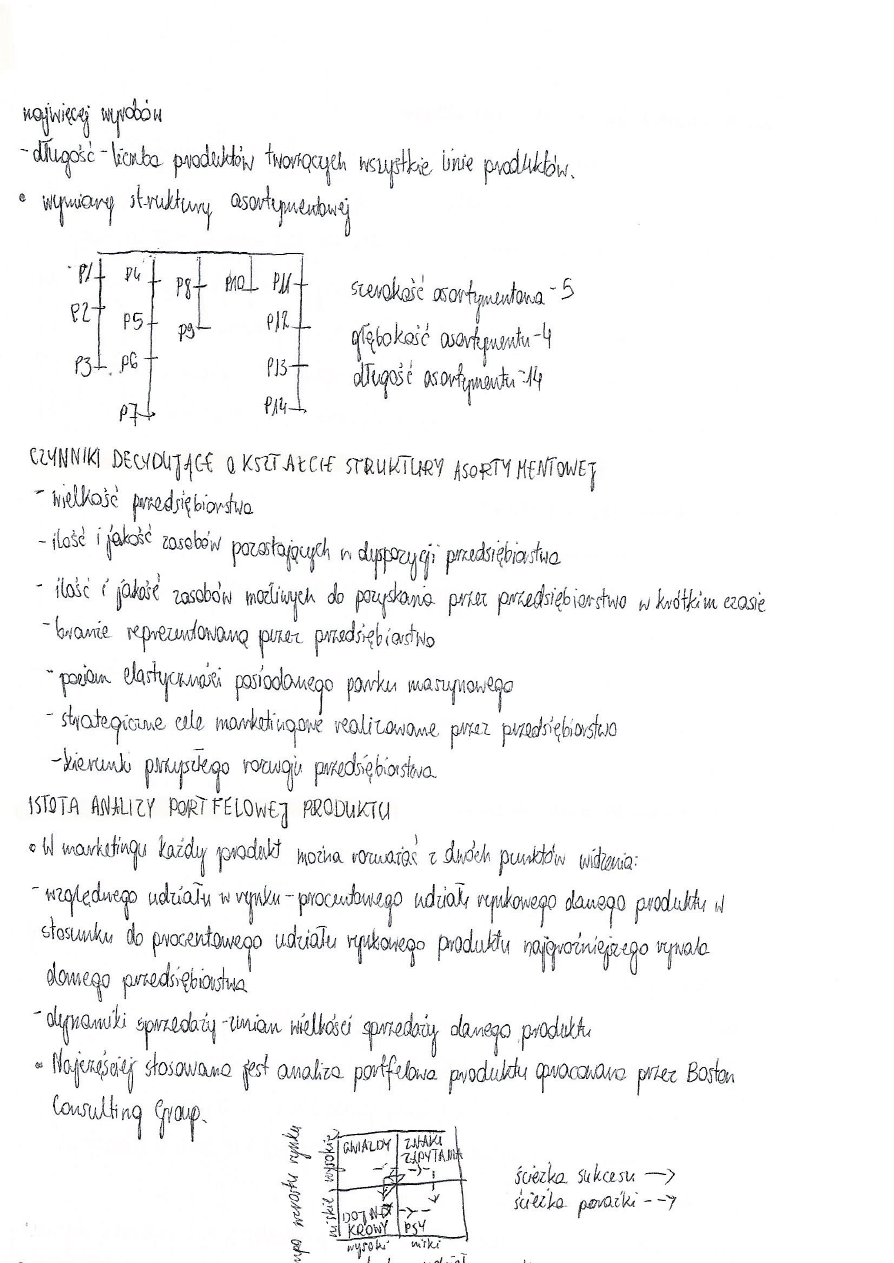 najwięcej wyrobów
- długość - liczba produktów tworzących wszystkie linie produktów.
• wymiary struktury asortymentowej
P1 P4 P8 P10 P11
P2 P5 P9 P12
P3 P6 P13
P7 P14
szerokość asortymentowa - 5
głębokość asortymentu - 4
długość asortymentu - 14
CZYNNIKI DECYDUJĄCE O KSZTAŁCIE STRUKTURY ASORTYMENTOWEJ
- wielkość przedsiębiorstwa
- ilość i jakość zasobów pozostających w dyspozycji przedsiębiorstwa
- ilość i jakość zasobów możliwych do pozyskania przez przedsiębiorstwo w krótkim czasie
- branże reprezentowaną przez przedsiębiorstwo
- poziom elastyczności posiadanego parku maszynowego
- strategiczne cele marketingowe realizowane przez przedsiębiorstwo
- kierunki przyszłego rozwoju przedsiębiorstwa
ISTOTA ANALIZY PORTFELOWEJ PRODUKTU
• W marketingu każdy produkt można rozważać z dwóch punktów widzenia:
- względnego udziału w rynku - procentowego udziału rynkowego danego produktu w
stosunku do procentowego udziału rynkowego produktu najgroźniejszego rywala
danego przedsiębiorstwa
- dynamiki sprzedaży - zmian wielkości sprzedaży danego produktu
• Najczęściej stosowana jest analiza portfelowa produktu opracowana przez Boston
Consulting Group.
wzrostu rynku
niskie wysokie
GWIAZDY ZNAKI ZAPYTANIA
DOJNE KROWY PSY
wysoki niski
ścieżka sukcesu —>
ścieżka porażki - ->
udział